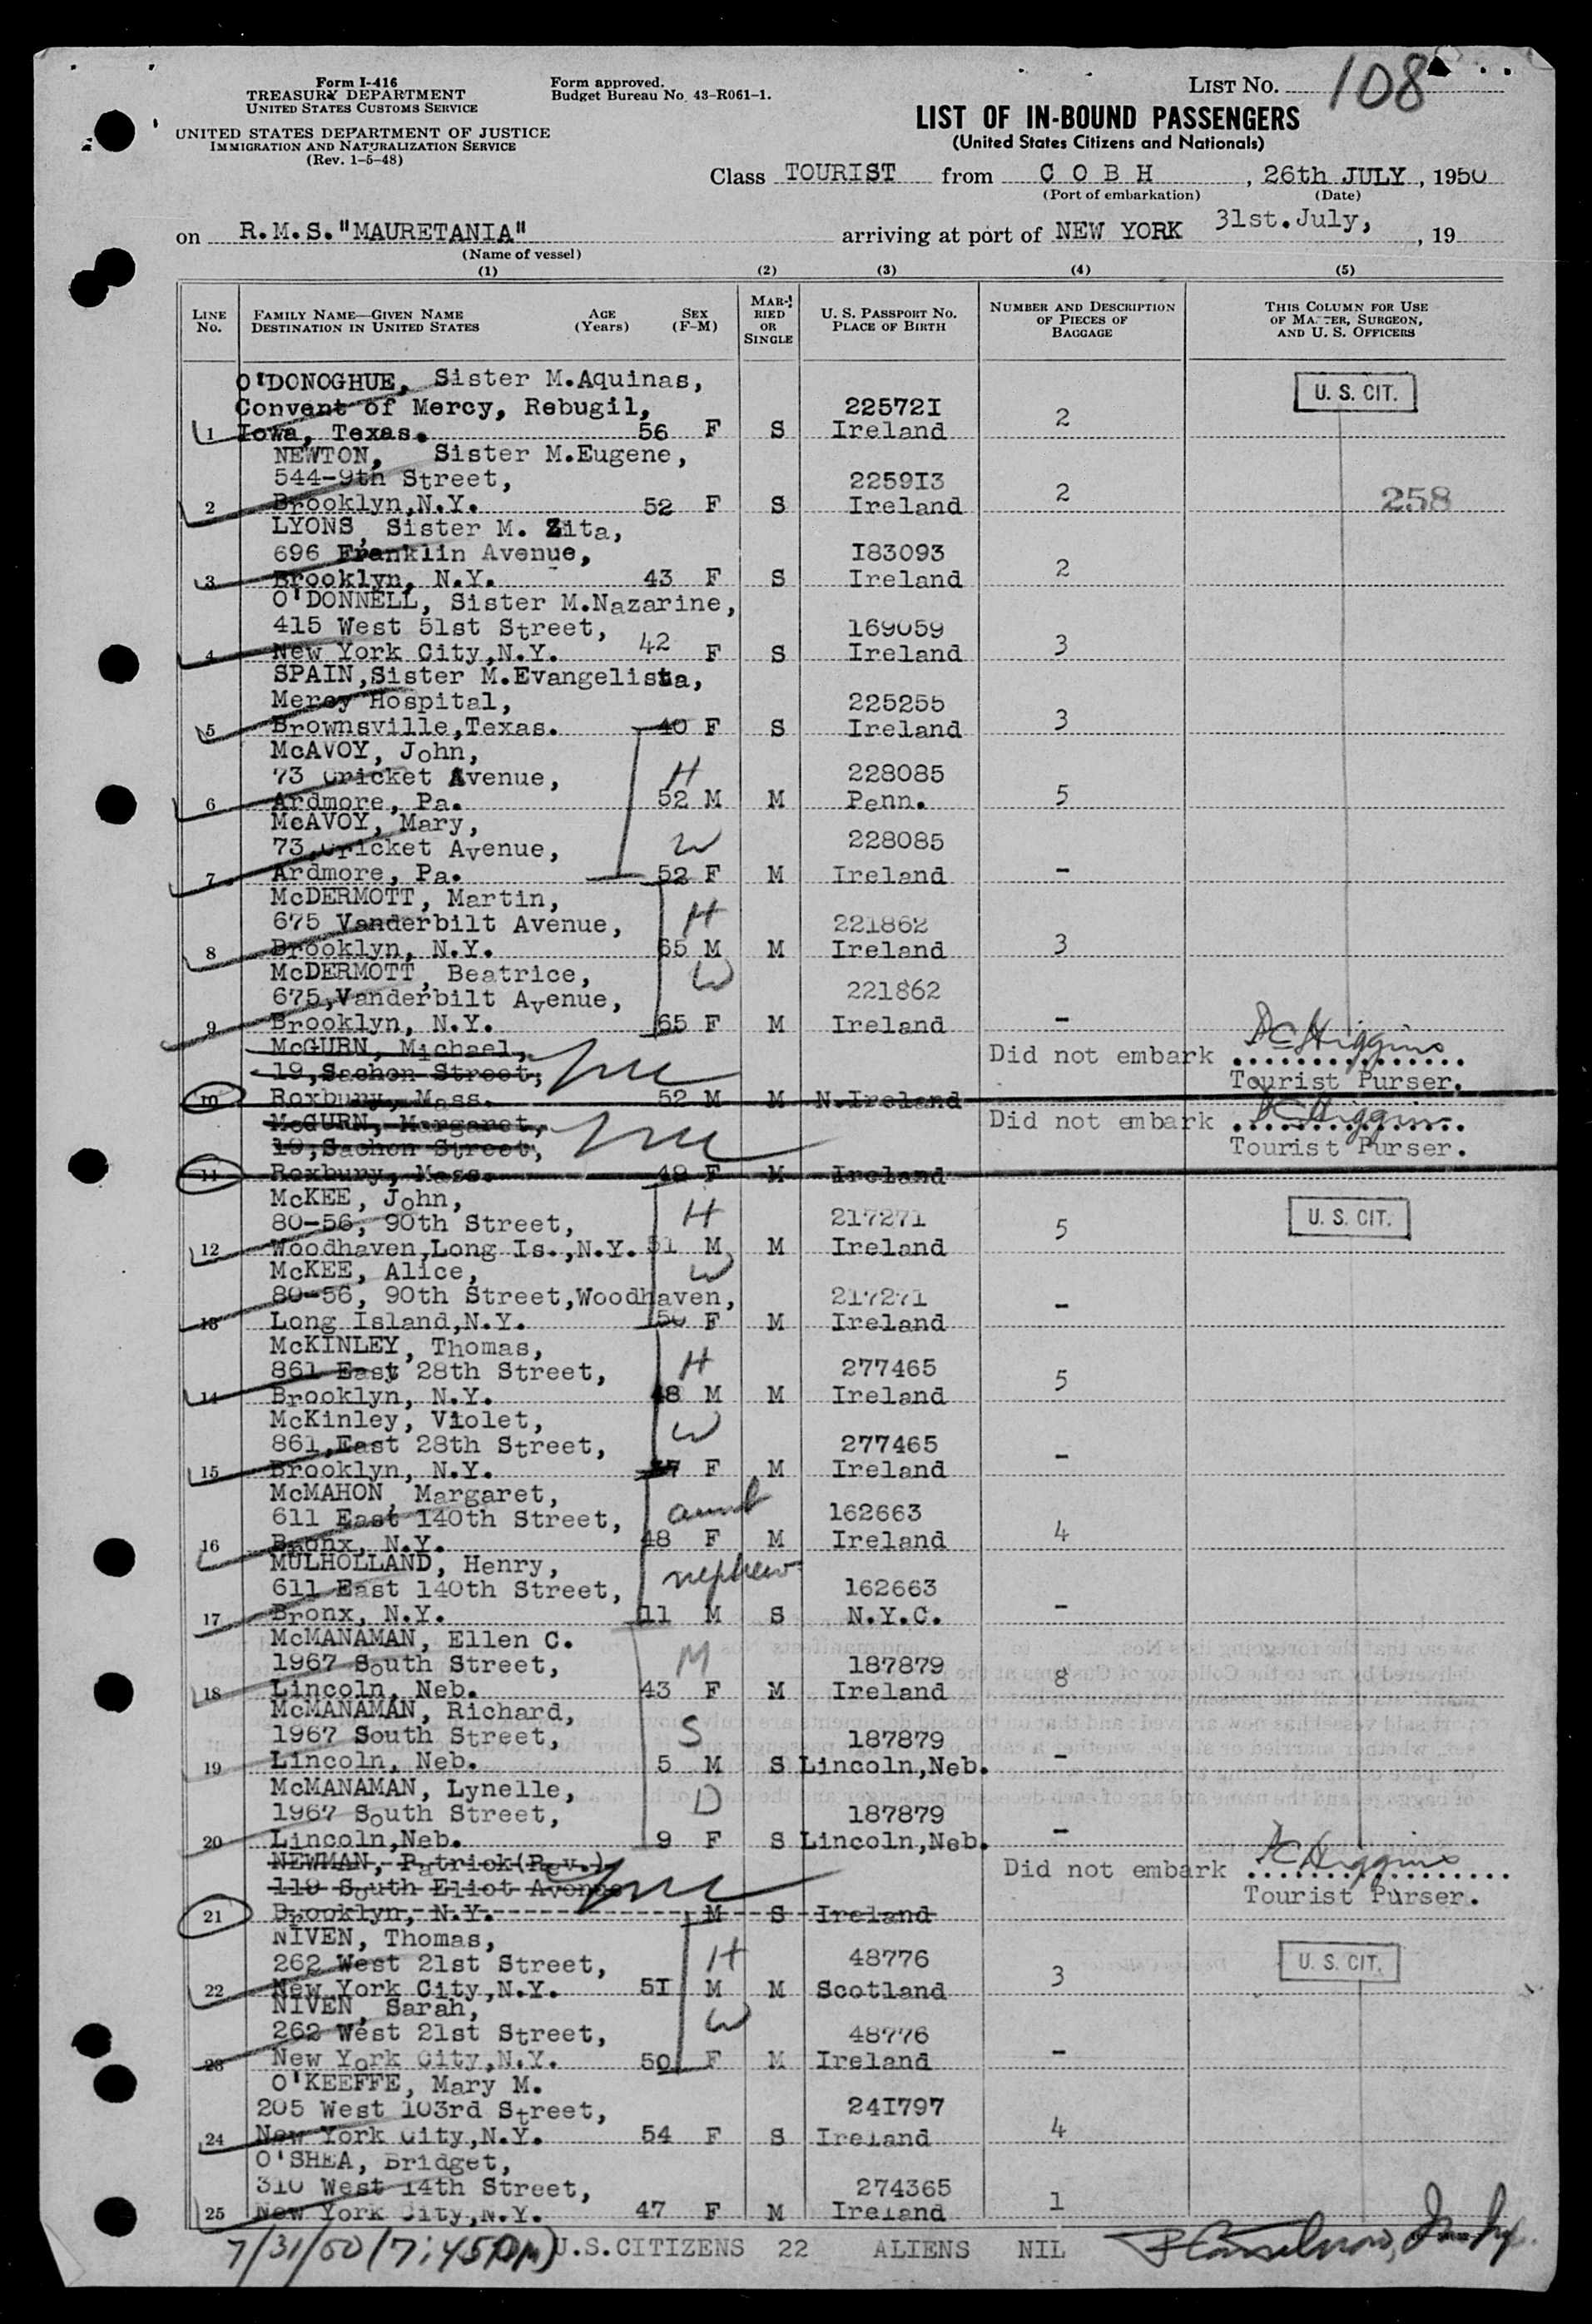 Form I-416
TREASURY DEPARTMENT
UNITED STATES CUSTOMS SERVICE
UNITED STATES DEPARTMENT OF JUSTICE
IMMIGRATION AND NATURALIZATION SERVICE
(Rev. 1-5-48)
Form approved.
Budget Bureau No. 43-R061-1.
LIST No. 108
LIST OF IN-BOUND PASSENGERS
(United States Citizens and Nationals)
Class TOURIST from C O B H, 26th JULY, 1950
(Port of embarkation) (Date)
on R.M.S."MAURETANIA" arriving at port of NEW YORK 31st.July, , 19
(Name of vessel)
(1) (2) (3) (4) (5)
LINE No. FAMILY NAME—GIVEN NAME DESTINATION IN UNITED STATES AGE (Years) SEX (F-M) MARRIED OR SINGLE U. S. PASSPORT No. PLACE OF BIRTH NUMBER AND DESCRIPTION OF PIECES OF BAGGAGE THIS COLUMN FOR USE OF MASTER, SURGEON, AND U. S. OFFICERS
O'DONOGHUE, Sister M.Aquinas, U. S. CIT.
Convent of Mercy, Rebugil, 22572I 2
1 Iowa, Texas. 56 F S Ireland
NEWTON, Sister M.Eugene,
544-9th Street, 2259I3 2 258
2 Brooklyn,N.Y. 52 F S Ireland
LYONS, Sister M. Zita,
696 Franklin Avenue, I83093 2
3 Brooklyn, N.Y. 43 F S Ireland
O'DONNELL, Sister M.Nazarine,
415 West 51st Street, 169059 3
4 New York City,N.Y. 42 F S Ireland
SPAIN,Sister M.Evangelista,
Mercy Hospital, 225255 3
5 Brownsville,Texas. 40 F S Ireland
McAVOY, John,
73 Cricket Avenue, H 228085
6 Ardmore, Pa. 52 M M Penn. 5
McAVOY, Mary,
73,Cricket Avenue, W 228085
7 Ardmore, Pa. 52 F M Ireland -
McDERMOTT, Martin,
675 Vanderbilt Avenue, H 221862
8 Brooklyn, N.Y. 65 M M Ireland 3
McDERMOTT, Beatrice, W
675,Vanderbilt Avenue, 221862
9 Brooklyn, N.Y. 65 F M Ireland -
McGURN, Michael, Did not embark
19,Sachon Street, Tourist Purser.
10 Roxbury, Mass. 52 M M N.Ireland
McGURN, Margaret, Did not embark
19,Sachon Street, Tourist Purser.
11 Roxbury, Mass. 48 F M Ireland
McKEE, John,
80-56, 90th Street, H 217271 5 U. S. CIT.
12 Woodhaven,Long Is.,N.Y. 51 M M Ireland
McKEE, Alice, W
80-56, 90th Street,Woodhaven, 217271
13 Long Island,N.Y. 50 F M Ireland -
McKINLEY, Thomas,
861 East 28th Street, H 277465 5
14 Brooklyn, N.Y. 48 M M Ireland
McKinley, Violet,
861,East 28th Street, W 277465
15 Brooklyn, N.Y. 37 F M Ireland -
McMAHON, Margaret, aunt
611 East 140th Street, 162663 4
16 Bronx, N.Y. 48 F M Ireland
MULHOLLAND, Henry, nephew
611 East 140th Street, 162663
17 Bronx, N.Y. 11 M S N.Y.C. -
McMANAMAN, Ellen C.
1967 South Street, M 187879 8
18 Lincoln, Neb. 43 F M Ireland
McMANAMAN, Richard,
1967 South Street, S 187879
19 Lincoln, Neb. 5 M S Lincoln,Neb. -
McMANAMAN, Lynelle,
1967 South Street, D 187879
20 Lincoln,Neb. 9 F S Lincoln,Neb. -
NEWMAN, Patrick(Rev.) Did not embark
119 South Eliot Avenue Tourist Purser.
21 Brooklyn, N.Y. M S Ireland
NIVEN, Thomas,
262 West 21st Street, H 48776 3 U. S. CIT.
22 New York City,N.Y. 5I M M Scotland
NIVEN, Sarah,
262 West 21st Street, W 48776
23 New York City,N.Y. 50 F M Ireland -
O'KEEFFE, Mary M.
205 West 103rd Street, 24I797 4
24 New York City,N.Y. 54 F S Ireland
O'SHEA, Bridget,
310 West 14th Street, 274365 1
25 New York City,N.Y. 47 F M Ireland
7/31/50 (7:45PM) U.S.CITIZENS 22 ALIENS NIL